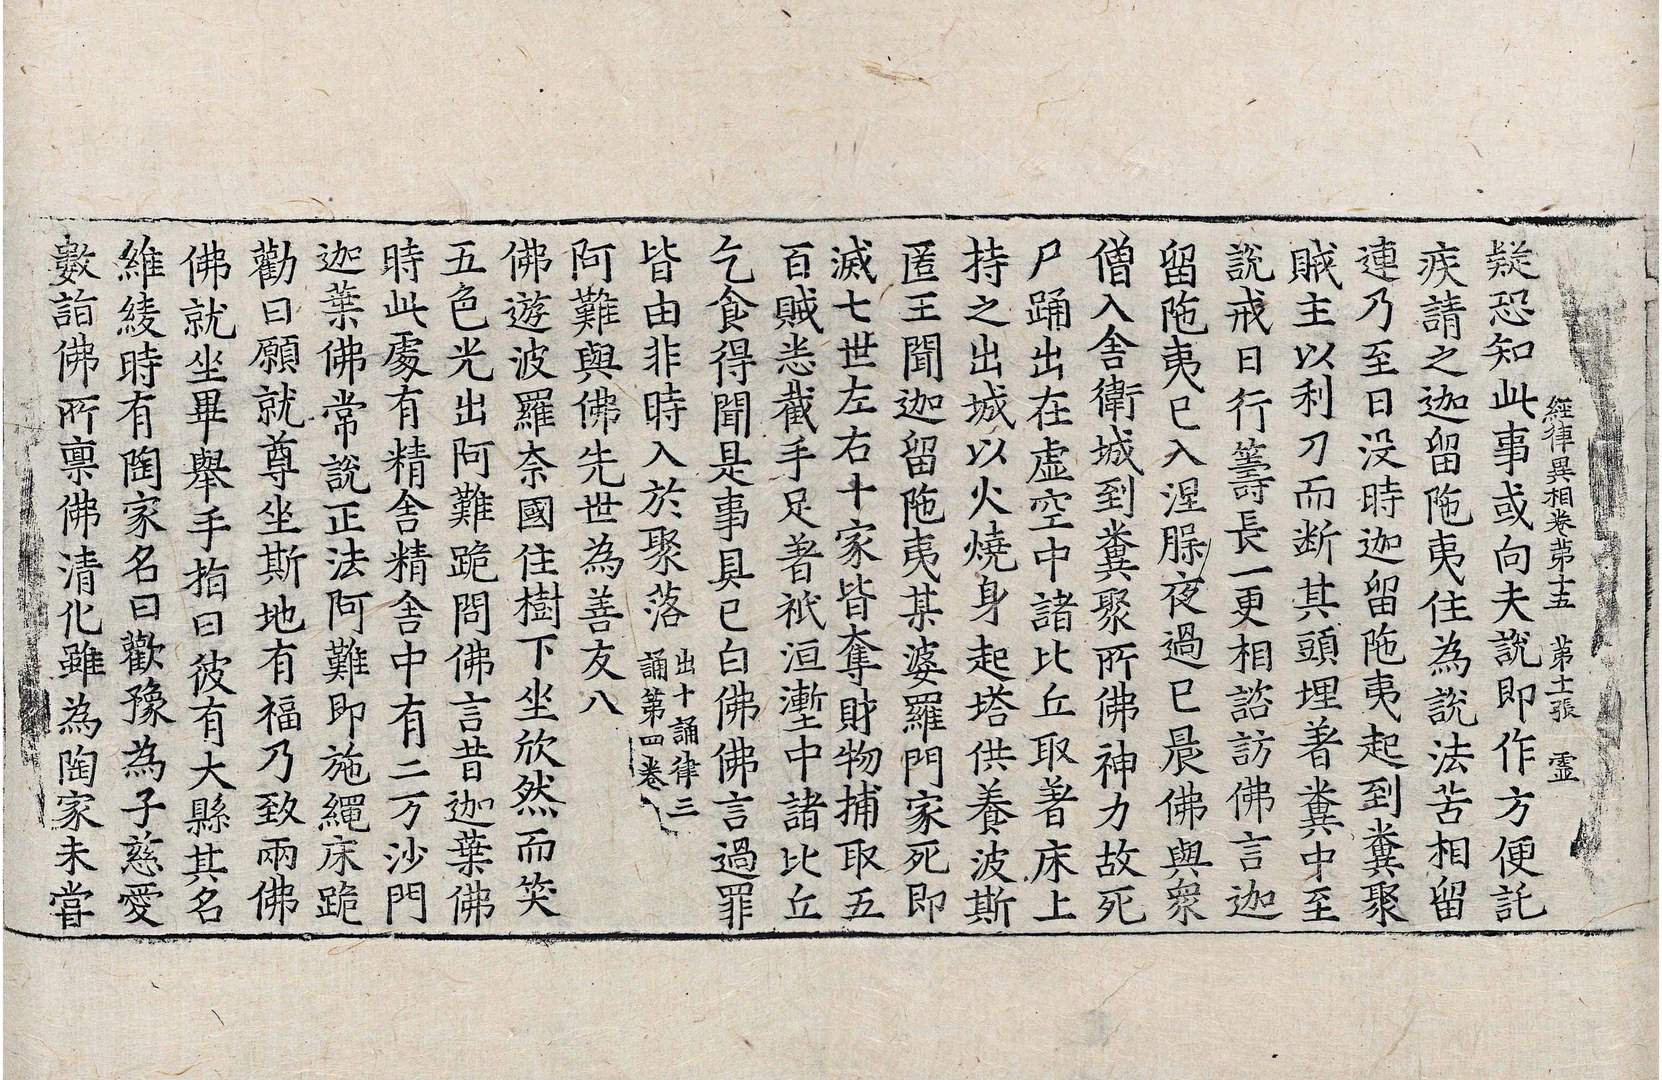 經律異相卷第十五 第十一張 靈
疑恐知此事或向夫說即作方便託
疾請之迦留陁夷住為說法苦相留
連乃至日没時迦留陁夷起到糞聚
賊主以利刀而断其頭埋著糞中至
說戒日行籌長一更相諮訪佛言迦
留陁夷已入涅槃夜過已晨佛與衆
僧入舎衛城到糞聚所佛神力故死
尸踊出在虚空中諸比丘取著床上
持之出城以火燒身起塔供養波斯
匿王聞迦留陁夷某婆羅門家死即
滅七世左右十家皆奪財物捕取五
百賊悉截手足著祇洹壍中諸比丘
乞食得聞是事具已白佛佛言過罪
皆由非時入於聚落 出十誦律三
誦第四卷
阿難與佛先世為善友八
佛遊波羅奈國住樹下坐欣然而笑
五色光出阿難跪問佛言昔迦葉佛
時此處有精舎精舎中有二万沙門
迦葉佛常說正法阿難即施繩床跪
勸曰願就尊坐斯地有福乃致兩佛
佛就坐畢舉手指曰彼有大縣其名
維綾時有陶家名曰歡豫為子慈愛
數詣佛所禀佛清化雖為陶家未嘗